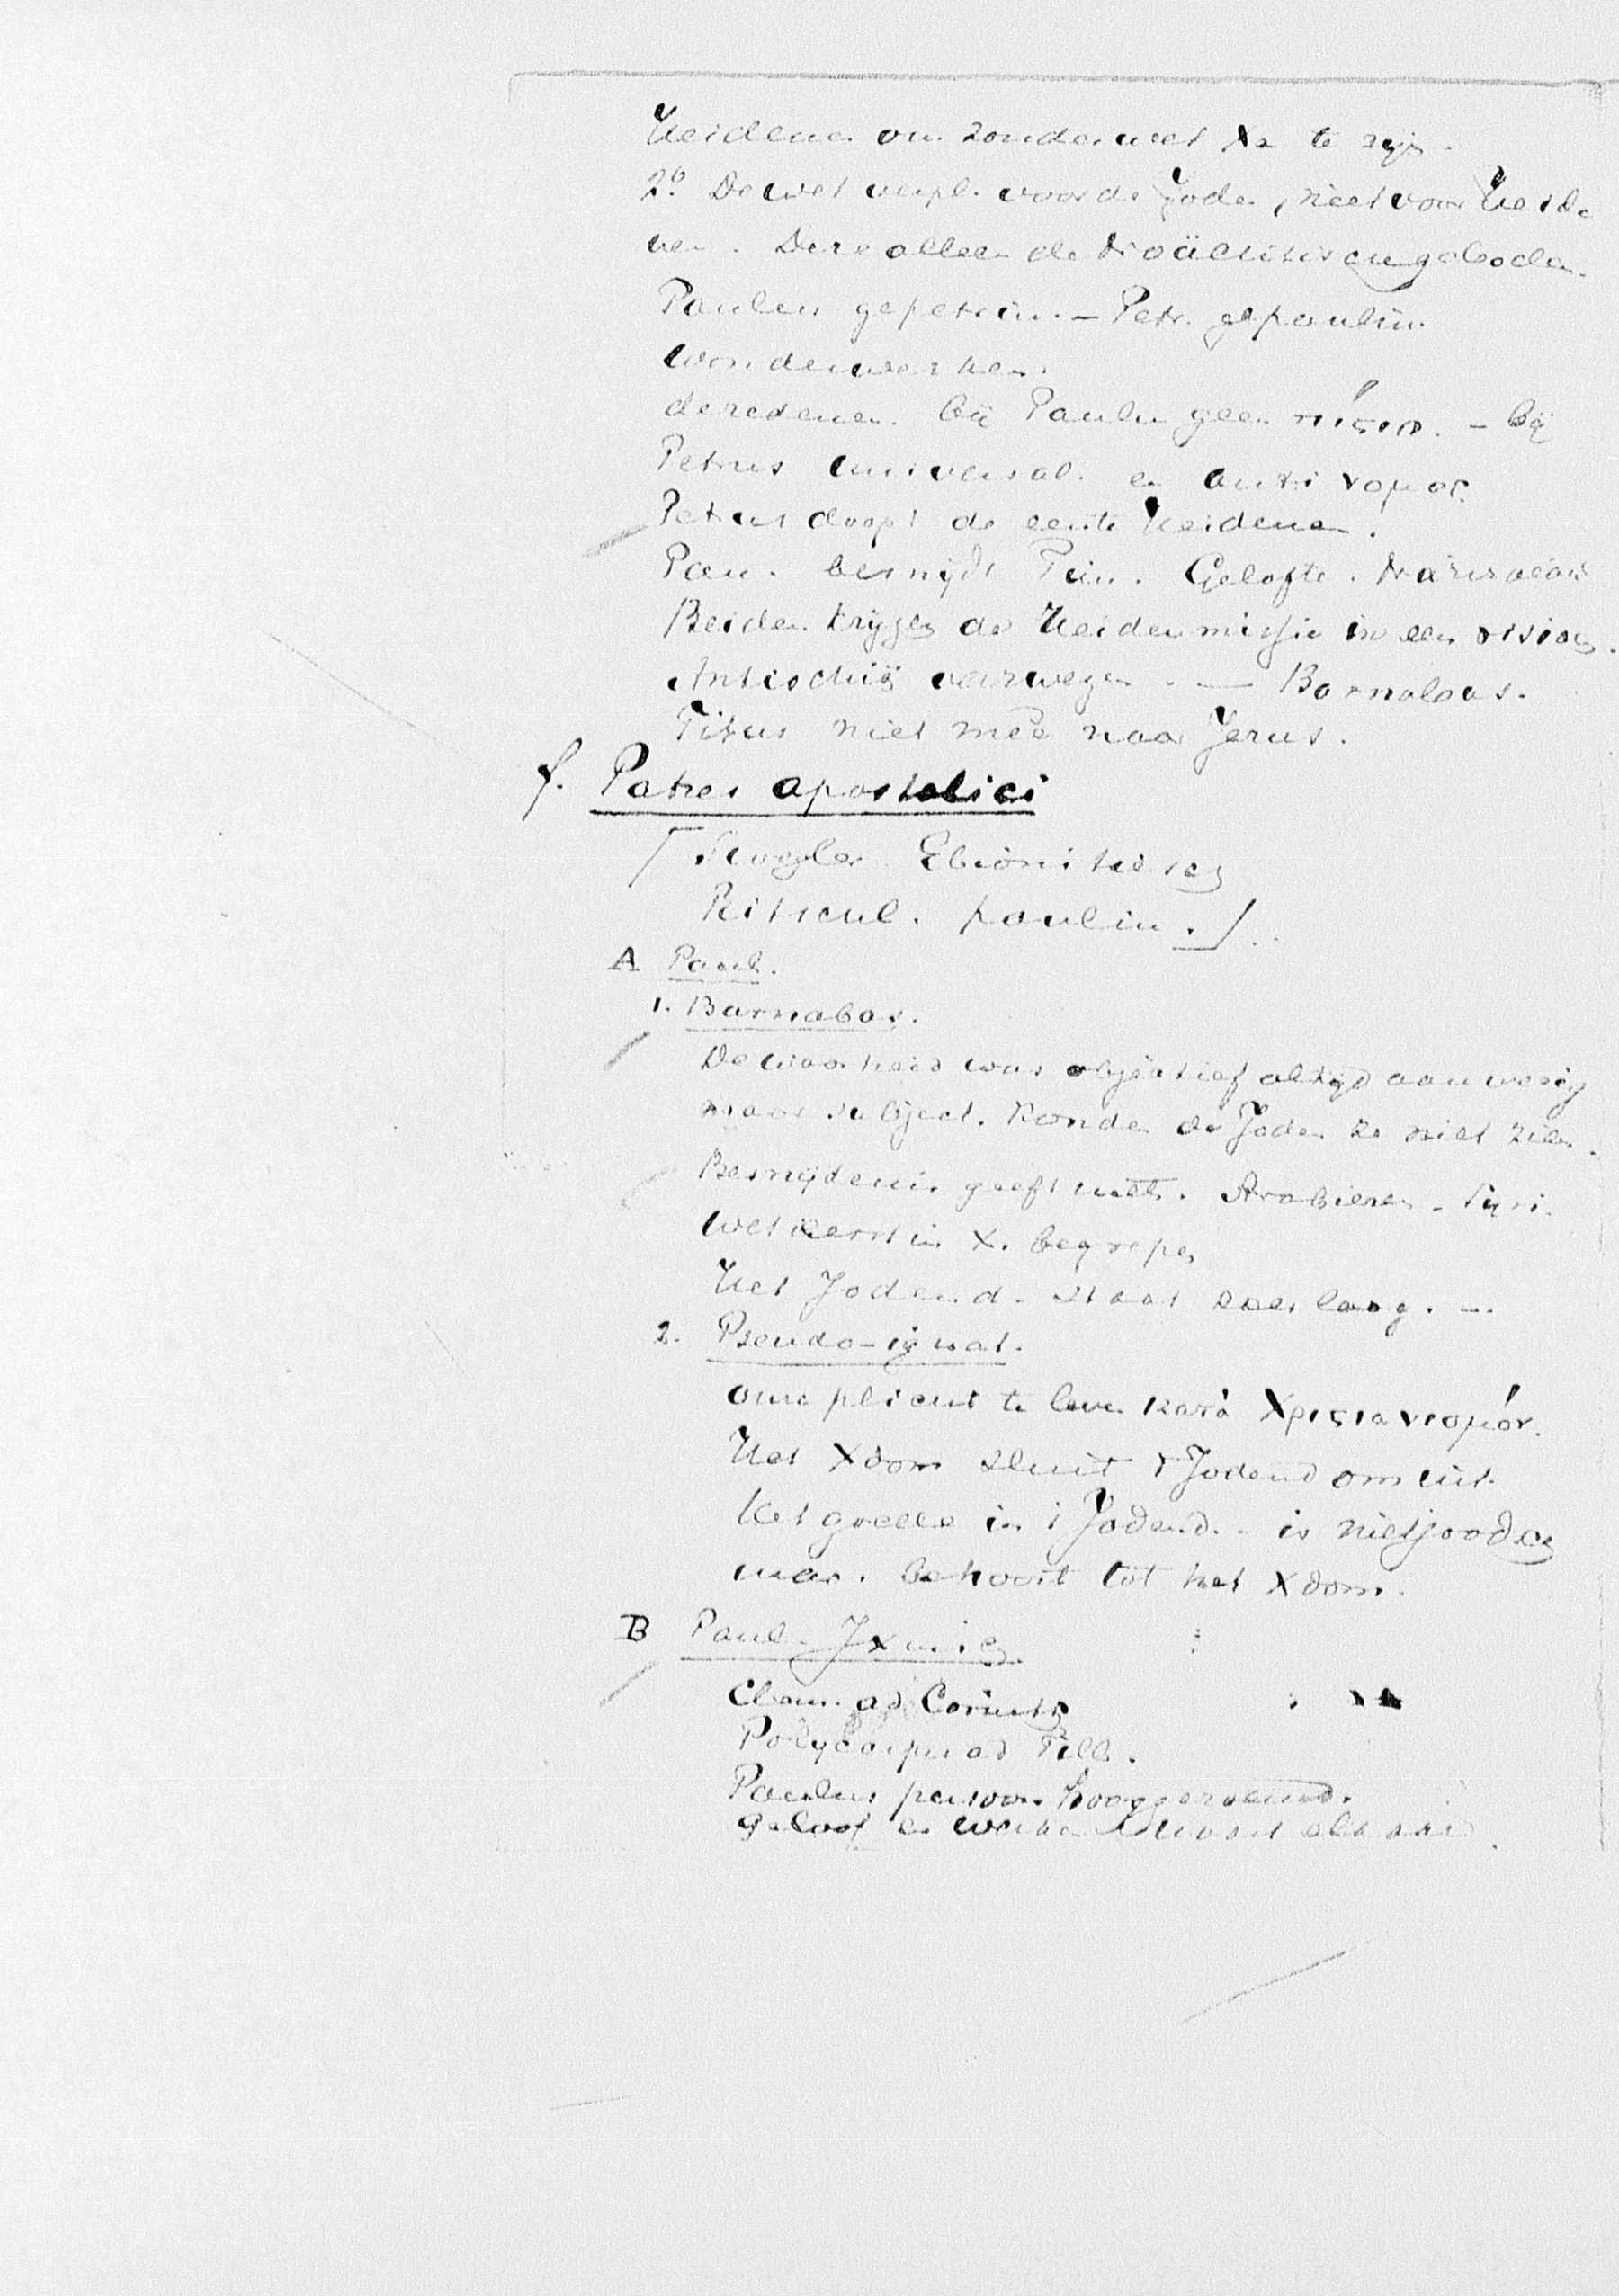 Heidenen om zonder wet Xn te zijn.
2º. De wet verpl. voor de Joden, niet voor Heide
nen. Deze alleen de Noächitische geboden.
Paulus gepetrin. – Petr. gepaulin.
Wonderwerken.
de redenen. bij Paulus geen πίςις. – bij
Petrus universal. en anti νομος.
Petrus doopt de eerste Heidenen.
Pau. besnijdt Tim. Gelofte. Naziraeaat
Beiden krijgen de Heidenmissie in een vision.
Antiochië verzwegen. — Barnabas.
Titus niet meê naar Jerus.
f. Patres apostolici
[Swegler Ebionitisch
Ritschl. paulin.]
A Paul.
1. Barnabas.
De waarheid was objectief altijd aanwezig
maar subject. konden de Joden ze niet zien.
Besnijdenis geeft niets. Arabieren. Syri.
Wet eerst in X. begrepen
Het Jodend. staat zeer laag. –
2. Pseudo-ignat.
onze plicht te leven κατὰ Χριςιανισμόν.
Het Xdom sluit 't Jodendom uit.
Het goede in 't Jodend. is niet joodsch
maar behoort tot het Xdom.
B Paul-
Clem. ad Corinth
Polycarpus ad Fill.
Paulus persoon hooggeroemd.
geloof en werken naast elkaar.